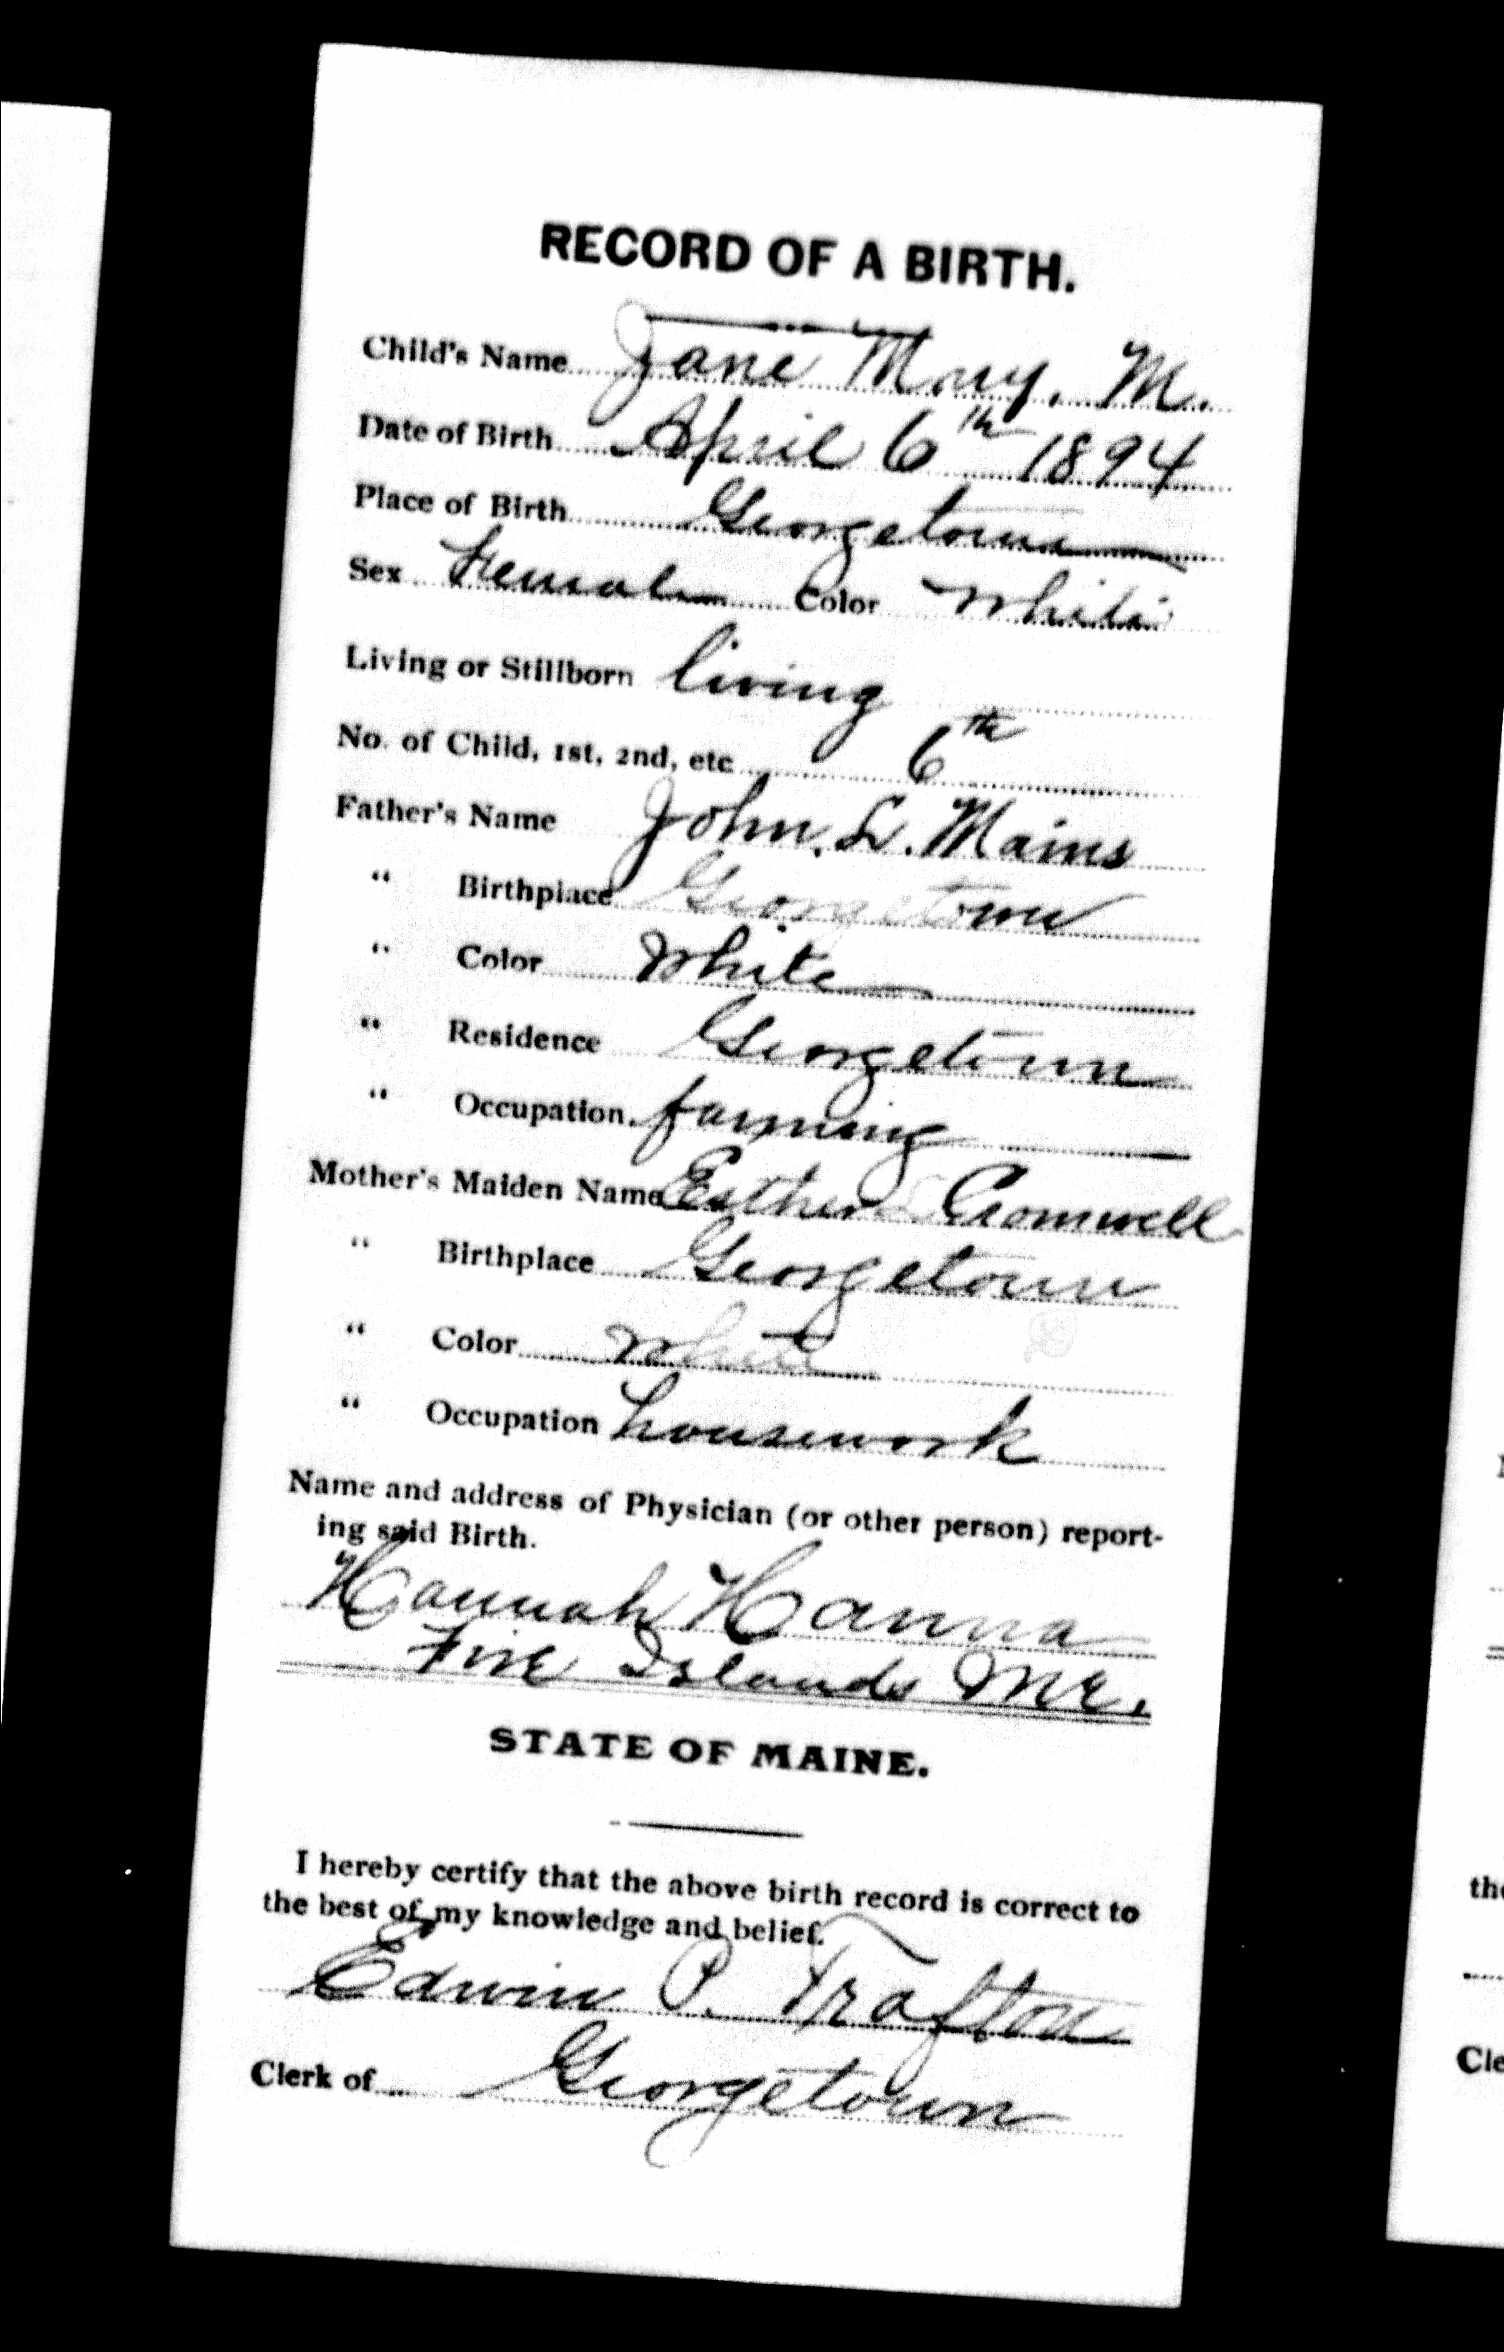 RECORD OF A BIRTH.
Child's Name Jane Mary. M.
Date of Birth April 6th 1894
Place of Birth Georgetown
Sex Female Color White
Living or Stillborn living
No. of Child, 1st, 2nd, etc 6th
Father's Name John. L. Mains
" Birthplace Georgetown
" Color White
" Residence Georgetown
" Occupation. farming
Mother's Maiden Name Esther Cromwell
" Birthplace Georgetown
" Color White
" Occupation housework
Name and address of Physician (or other person) report-
ing said Birth.
Hannah Hanna
Five Islands Me.
STATE OF MAINE.
I hereby certify that the above birth record is correct to
the best of my knowledge and belief.
Edwin P. Trafton
Clerk of Georgetown
the
Cle